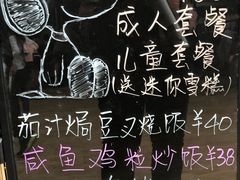 成人套餐
儿童套餐
(送迷你雪糕)
茄汁焗豆叉烧饭¥40
咸鱼鸡粒炒饭¥38